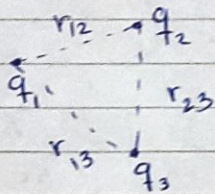 r₁₂
q₂
q₁
r₂₃
r₁₃
q₃